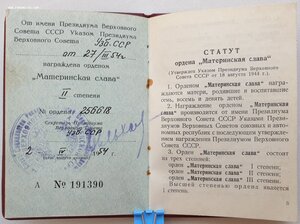 От имени Президиума Верховного
Совета СССР Указом Президиума
Верховного Совета УзССР
от 27/III 54 г.
награждена орденом
„Материнская слава"
II степени
№ ордена 256618
Секретарь Президиума
УзССР
2 IV 54
А № 191390
СТАТУТ
ордена „Материнская слава"
(Утвержден Указом Президиума Верховного
Совета СССР от 18 августа 1944 г.)
1. Орденом „Материнская слава" награждаются
матери, родившие и воспитавшие
семь, восемь и девять детей.
2. Награждение орденом „Материнская
слава" производится от имени Президиума
Верховного Совета СССР Указами Президиумов
Верховных Советов союзных и автономных
республик с последующим утверждением
Президиумом Верховного Совета СССР.
3. Орден „Материнская слава" состоит
из трех степеней:
орден „Материнская слава" I степени;
орден „Материнская слава" II степени;
орден „Материнская слава" III степени.
Высшей степенью ордена является